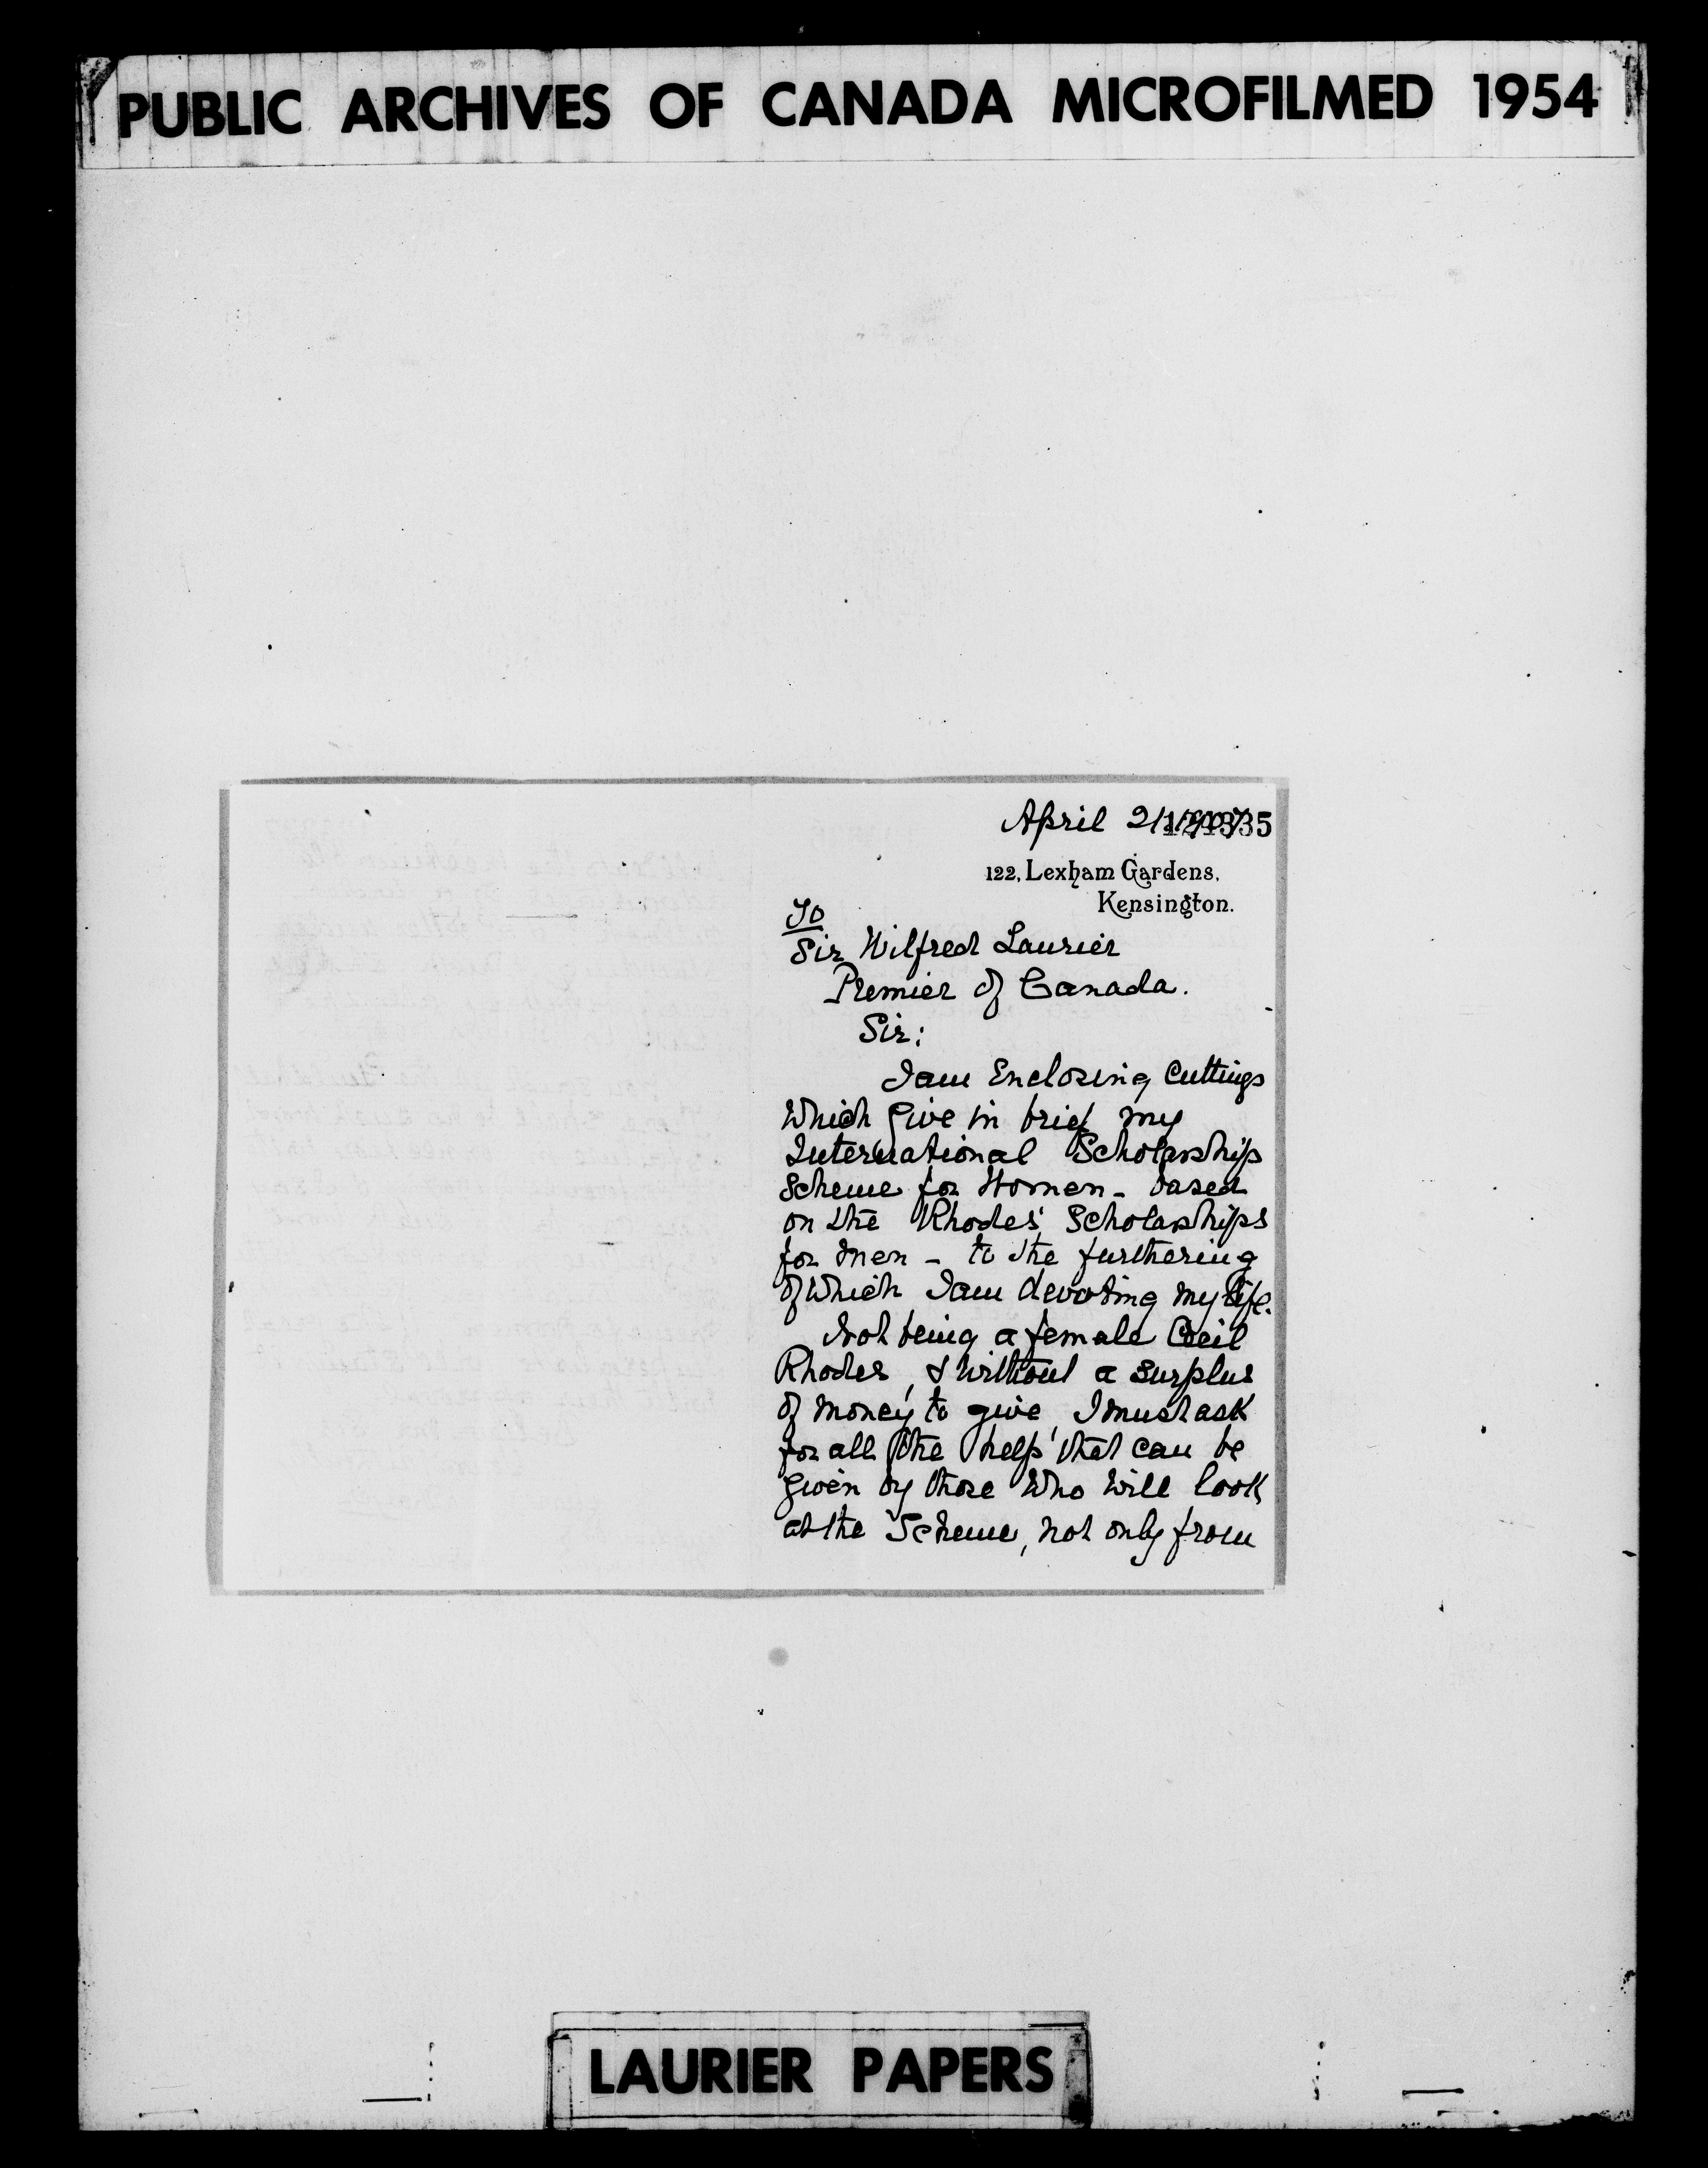 PUBLIC ARCHIVES OF CANADA MICROFILMED 1954
April
122, Lexham Gardens,
Kensington.
To
Sir Wilfred Laurier
Premier of Canada.
Sir:
I am Enclosing Cuttings
Which Give in brief my
International Scholarship
Scheme for Women - based
on the Rhodes' Scholarships
for Men - to the furthering
of Which I am devoting my life.
Not being a female Cecil
Rhodes, & Without a surplus
of Money to give, I must ask
for all the help that can be
Given by those Who Will look
at the Scheme, not only from
LAURIER PAPERS